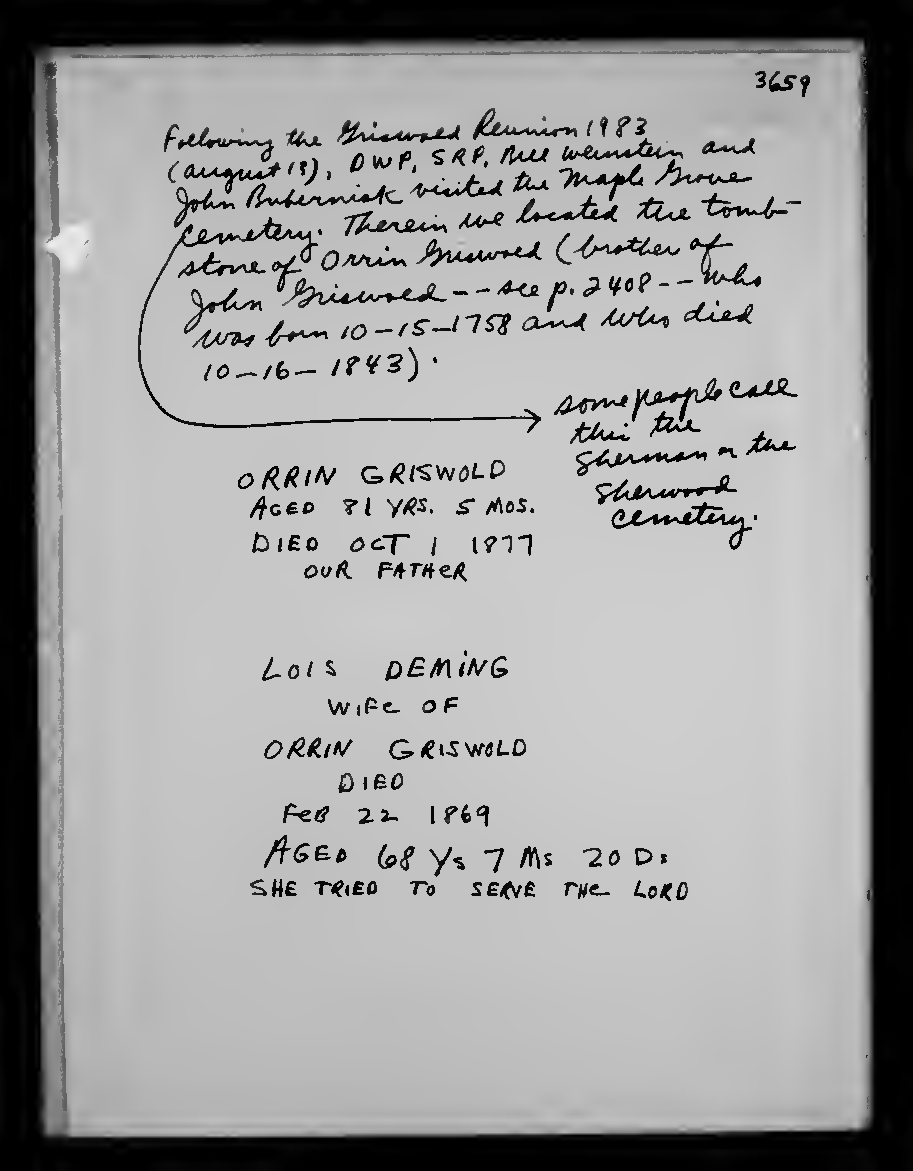 3659
Following the Griswold Reunion 1983
(August 13), DWP, SRP, Bill Weinstein and
John Buberniak visited the Maple Grove
Cemetery. Therein we located the tomb-
stone of Orrin Griswold (brother of
John Griswold -- see p. 2408 -- who
was born 10-15-1758 and who died
10-16-1843).
some people call
this the
Sherman or the
Sherwood
Cemetery.
ORRIN GRISWOLD
AGED 81 YRS. 5 MOS.
DIED OCT 1 1877
OUR FATHER
LOIS DEMING
WIFE OF
ORRIN GRISWOLD
DIED
FEB 22 1869
AGED 68 Ys 7 Ms 20 Ds
SHE TRIED TO SERVE THE LORD